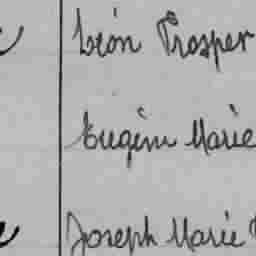 Léon Prosper
Eugène Marie
Joseph Marie